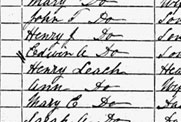 Mary Do
John T Do
Henry J Do
Edwin A Do
Henry Leach
Ann Do
Mary E Do
Sarah A Do